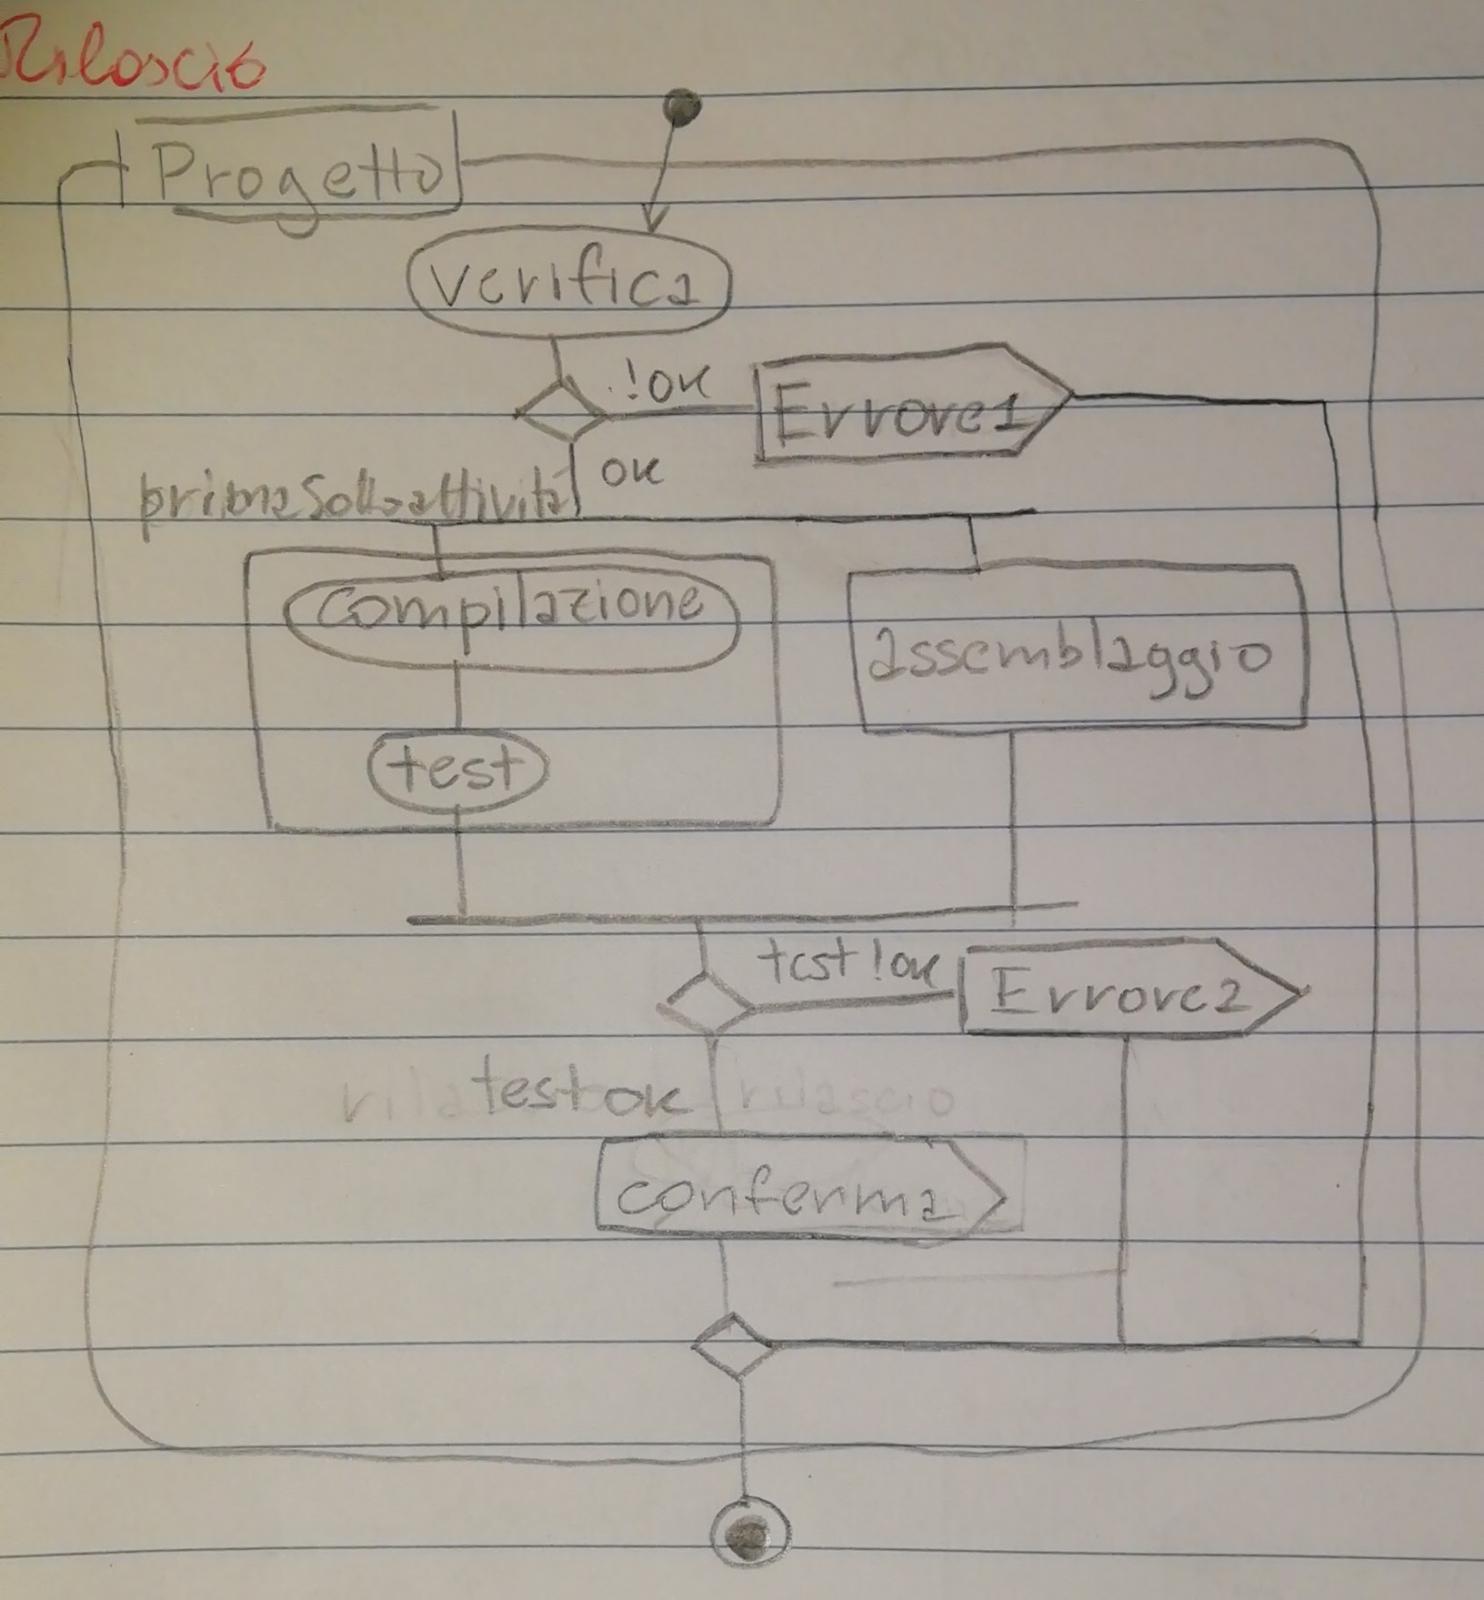 Rilascio
Progetto
verifica
!ok
Errore1
ok
primaSottoattività
compilazione
assemblaggio
test
test !ok
Errore2
testok
rilascio
conferma